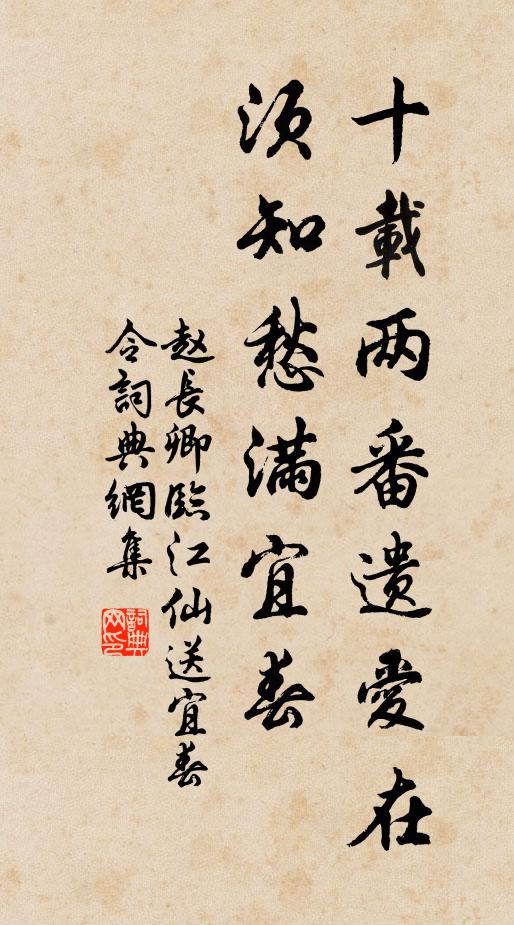 十載两番遺愛在
須知愁滿宜春
赵長卿臨江仙送宜春
令詞典網集
詞典网印